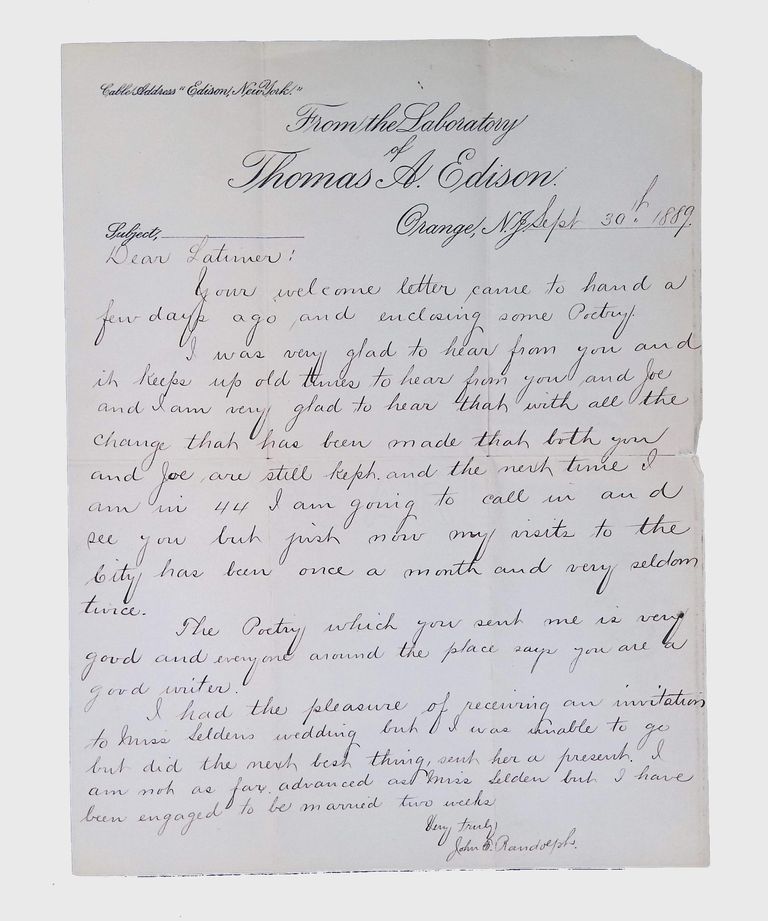 Cable Address "Edison, New York."
From the Laboratory
of
Thomas A. Edison.
Orange, N.J. Sept 30th 1889.
Subject,
Dear Latimer:
Your welcome letter came to hand a
few days ago and enclosing some Poetry.
I was very glad to hear from you and
it keeps up old times to hear from you and Joe
and I am very glad to hear that with all the
change that has been made that both you
and Joe are still kept. and the next time I
am in 44 I am going to call in and
see you but just now my visits to the
City has been once a month and very seldom
twice.
The Poetry which you sent me is very
good and everyone around the place says you are a
good writer.
I had the pleasure of receiving an invitation
to Miss Seldens wedding but I was unable to go
but did the next best thing, sent her a present. I
am not as far advanced as Miss Selden but I have
been engaged to be married two weeks
Very truly
John F. Randolph.